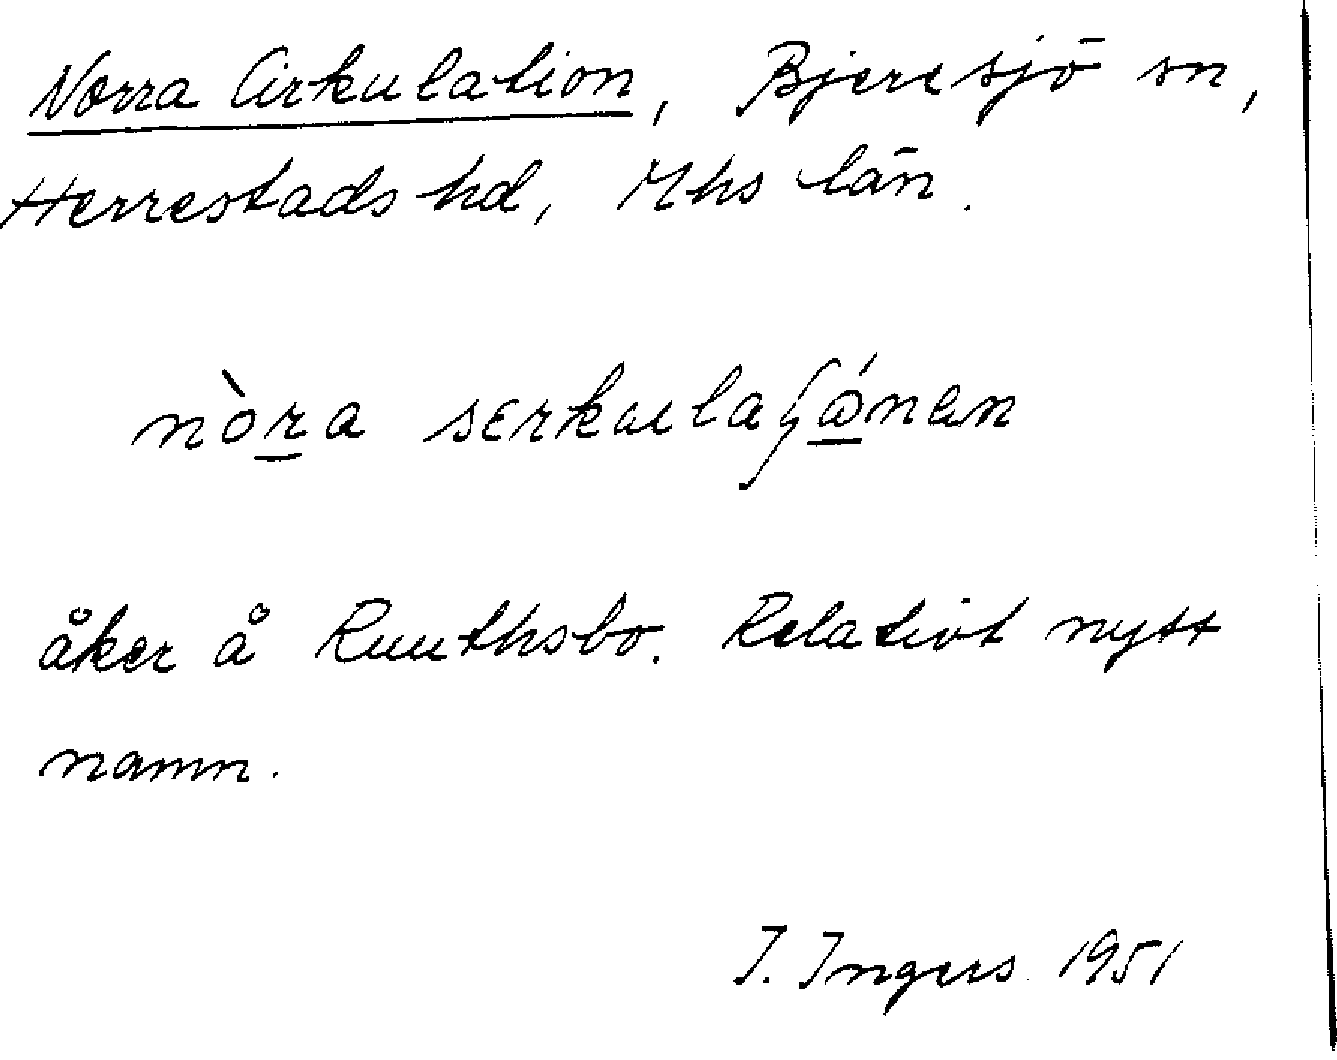 Norra Cirkulation, Bjeresjö sn,
Herrestads hd, Mhs län.
nòra
åker å Ruuthsbo. Relativt nytt
namn.
I. Ingers 1951